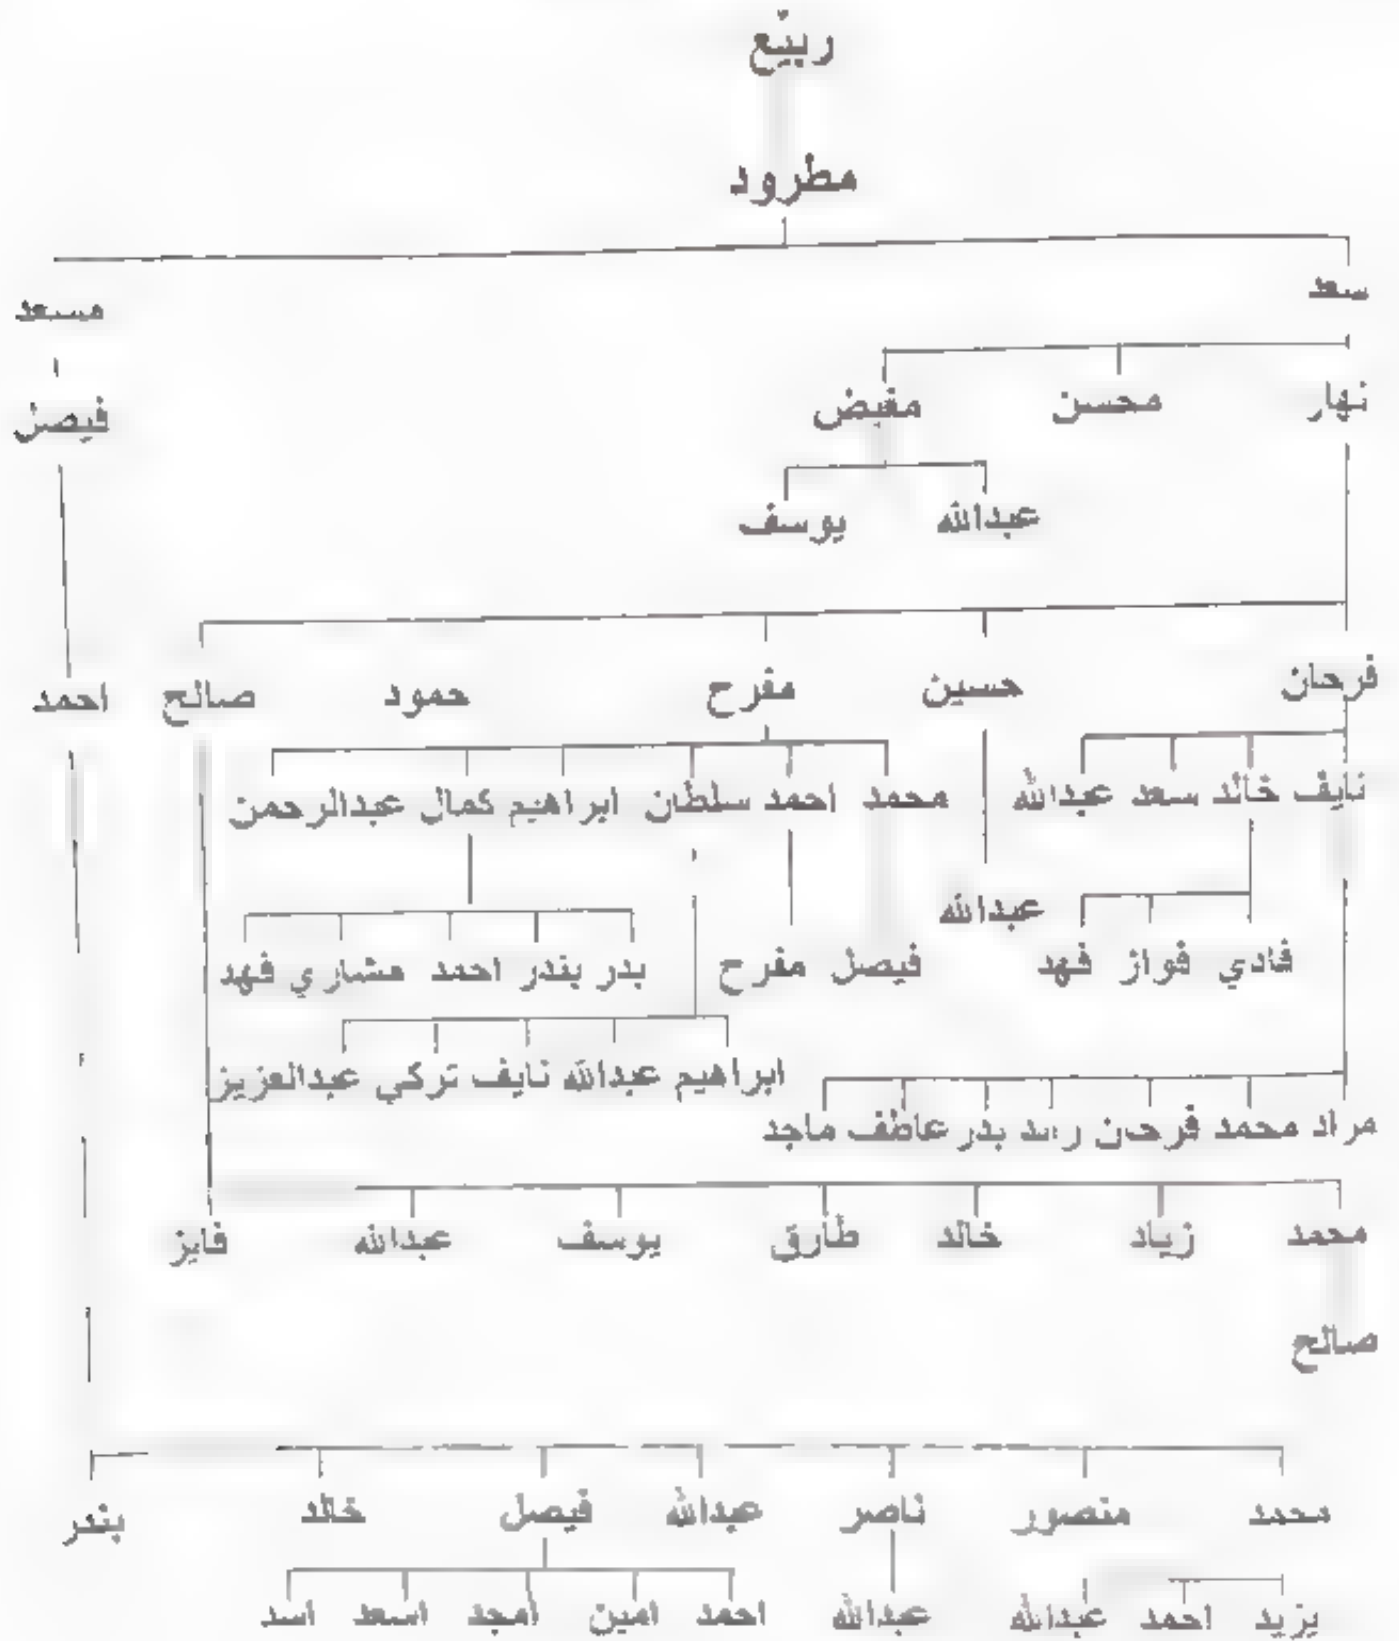 ربيّع
مطرود
سعد مسعد
نهار محسن مقبض فيصل
عبدالله يوسف
فرحان حسين مفرح حمود صالح احمد
نايف خالد سعد عبدالله محمد احمد سلطان ابراهيم كمال عبدالرحمن
عبدالله
فادي فواز فهد فيصل مفرح بدر بندر احمد مشاري فهد
ابراهيم عبدالله نايف تركي عبدالعزيز
مراد محمد فرحان بدر عاطف ماجد
محمد زياد خالد طارق يوسف عبدالله فايز
صالح
محمد منصور ناصر عبدالله فيصل خالد بندر
يزيد احمد عبدالله عبدالله احمد امين امجد اسعد اسد